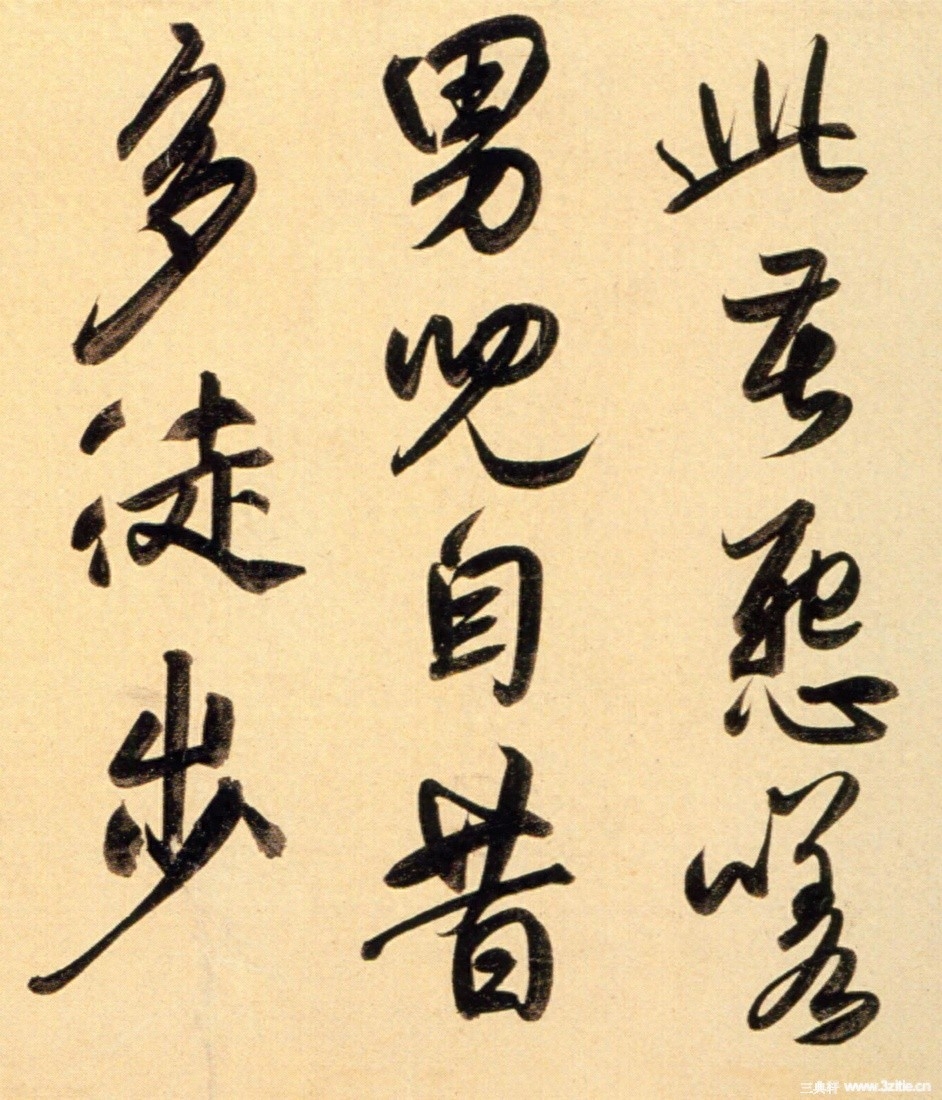 此嗟
男兒自昔
多徒步
三典轩 www.3zitie.cn